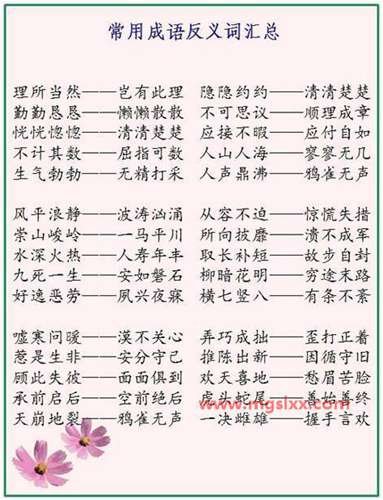 常用成语反义词汇总
理所当然——岂有此理 隐隐约约——清清楚楚
勤勤恳恳——懒懒散散 不可思议——顺理成章
恍恍惚惚——清清楚楚 应接不暇——应付自如
不计其数——屈指可数 人山人海——寥寥无几
生气勃勃——无精打采 人声鼎沸——鸦雀无声
风平浪静——波涛汹涌 从容不迫——惊慌失措
崇山峻岭——一马平川 所向披靡——溃不成军
水深火热——人寿年丰 取长补短——故步自封
九死一生——安如磐石 柳暗花明——穷途末路
好逸恶劳——夙兴夜寐 横七竖八——有条不紊
嘘寒问暖——漠不关心 弄巧成拙——歪打正着
惹是生非——安分守己 推陈出新——因循守旧
顾此失彼——面面俱到 欢天喜地——愁眉苦脸
承前启后——空前绝后 虎头蛇尾——善始善终
www.mgslxx.com
天崩地裂——鸦雀无声 一决雌雄——握手言欢